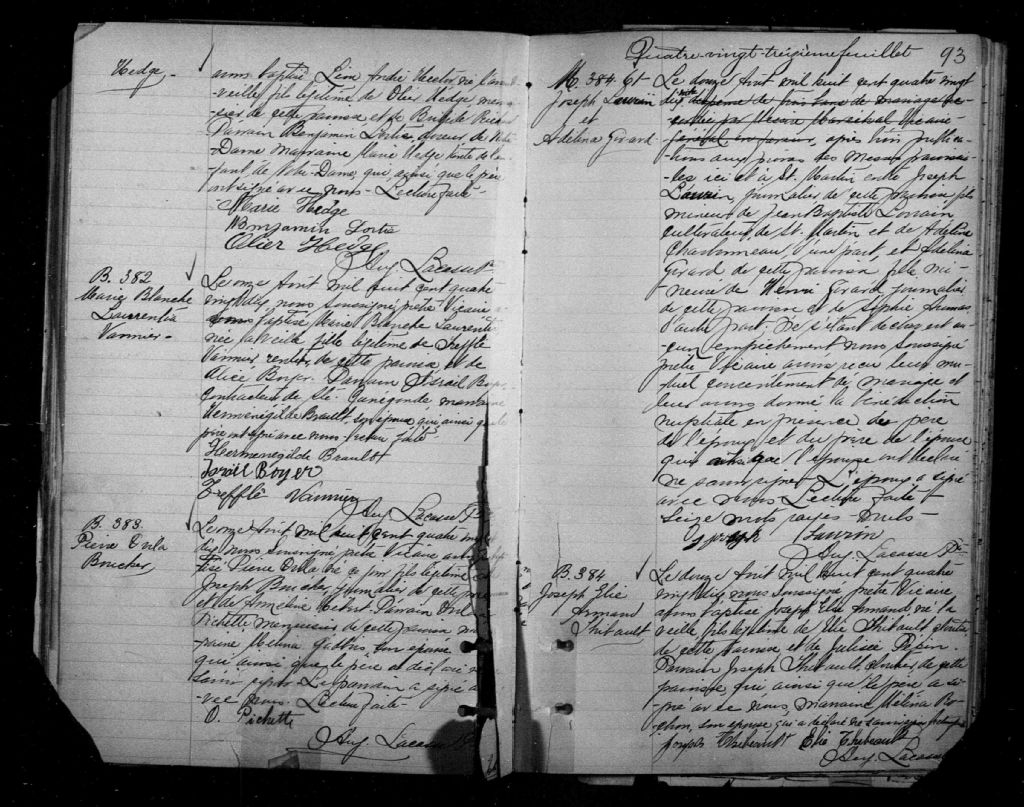 Hedge.
avons baptisé Léon André Hector né l'avant
veille fils légitime de Olier Hedge menui-
sier de cette paroisse et de
Parrain Benjamin Lortie de Notre
Dame marraine Marie Hedge tante de l'en-
fant de Notre-Dame, qui, ainsi que le père
ont signé avec nous - Lecture faite -
Marie Hedge
Benjamin Lortie
Olier Hedge
Aug. Lacasse Ptr
B. 382
Marie Blanche
Laurentia
Vannier.
Le onze Août mil huit cent quatre
vingt dix nous soussigné prêtre Vicaire a-
vons baptisé Marie Blanche Laurentia
née la veille fille légitime de Trefflé
Vannier rentier de cette paroisse et de
Alice Boyer. Parrain Israël Boyer
Contracteur de Ste. Cunégonde marraine
Herménégilde Brault, son épouse qui ainsi que le
père ont signé avec nous. Lecture faite
Herménégilde Brault
Israël Boyer
Trefflé Vannier
Aug. Lacasse Ptr
B. 383.
Pierre Orila
Boucher,
Le onze Août mil huit cent quatre vingt
dix nous soussigné prêtre Vicaire avons bap-
tisé Pierre Orila né ce jour fils légitime de
Joseph Boucher, journalier de cette paroisse
et de Herméline Hébert. Parrain
Pichette menuisier de cette paroisse mar-
raine son épouse
qui ainsi que le père ont déclaré ne
savoir signer Le parrain a signé a-
vec nous. Lecture faite -
O. Pichette
Aug. Lacasse Ptr
Quatre-vingt-treizième feuillet 93
M. 384 Et
Joseph Laurin
et
Adélina Girard
Le douze Août mil huit cent quatre vingt
dix dispense de trois bans de mariage ac-
cordée par
après trois publica-
tions aux prônes des Messes paroissia-
les ici et à St. Martin entre Joseph
Lauzin, journalier de cette paroisse fils
mineur de Jean Baptiste Lorrain
cultivateur, de St. Martin et de Adélina
Charbonneau d'une part, et Adélina
Girard de cette paroisse fille mi-
neure de Henri Girard journalier
de cette paroisse et de Sophie
d'autre part. Ne s'étant découvert au-
cun empêchement nous soussigné
prêtre Vicaire avons reçu leur mu-
tuel consentement de mariage et
leur avons donné la bénédiction
nuptiale en présence du père
de l'époux et du père de l'épouse
qui ainsi que l'épouse ont déclaré
ne savoir signer. L'époux a signé
avec nous Lecture faite -
Seize mots rayés nuls
Joseph Laurin
Aug. Lacasse Ptr
B. 384
Joseph Elie
Armand
Thibault
Le douze Août mil huit cent quatre
vingt dix nous soussigné prêtre Vicaire
avons baptisé Joseph Elie Armand né la
veille fils légitime de Elie Thibault
de cette paroisse et de Julie Pépin.
Parrain Joseph Thibault, de cette
paroisse, qui, ainsi que le père a si-
gné avec nous, marraine Mélina Ro-
chon, son épouse, qui a déclaré ne savoir signer
Joseph Thibeault Elie Thibeault
Aug. Lacasse